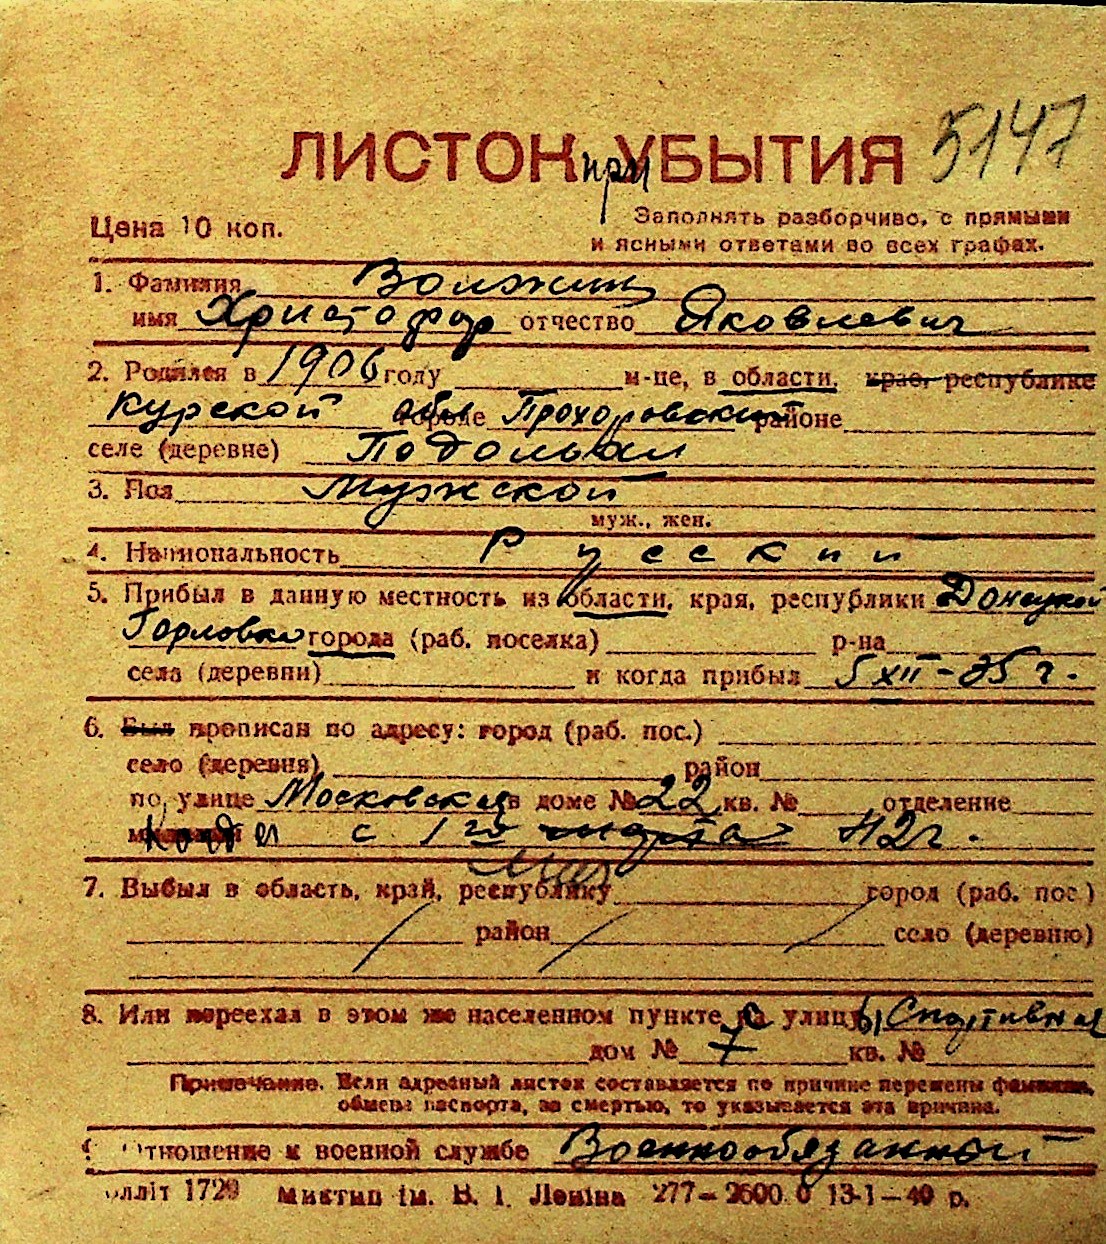 5147
ЛИСТОК при УБЫТИЯ
Цена 10 коп.
Заполнять разборчиво, с прямыми
и ясными ответами во всех графах.
1. Фамилия Волжин
имя Христофор отчество Яковлевич
2. Родился в 1906 году м-це, в области, край, республике
Курской обл городе Прохоровский районе
селе (деревне) Подольхи
3. Пол Мужской
муж., жен.
4. Национальность Русский
5. Прибыл в данную местность из области, края, республики Донецкой
Горловка города (раб. поселка) р-на
села (деревни) и когда прибыл 5 XII-35 г.
6. Был прописан по адресу: город (раб. пос.)
село (деревня) район
по улице Московская в доме № 22 кв. № отделение
с 1го марта 42 г.
мая
7. Выбыл в область, край, республику город (раб. пос.)
район село (деревню)
8. Или переехал в этом же населенном пункте с улицы Спортивная
дом № 7 кв. №
Примечание. Если адресный листок составляется по причине перемены фамилии,
обмена паспорта, за смертью, то указывается эта причина.
9. Отношение к военной службе Военнообязанный
олліт 1729 Миктип ім. В. І. Леніна 277—2600 0 13-1—40 р.